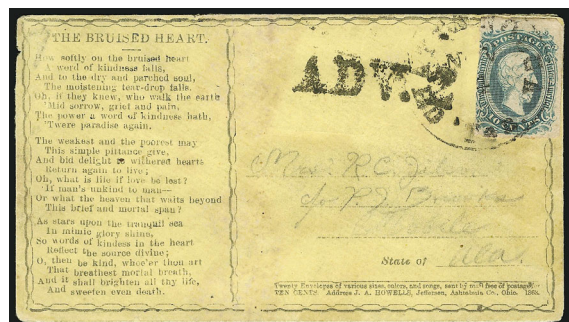 THE BRUISED HEART.
How softly on the bruised heart
A word of kindness falls,
And to the dry and parched soul,
The moistening tear-drop falls.
Oh, if they knew, who walk the earth
'Mid sorrow, grief and pain,
The power a word of kindness hath,
'Twere paradise again.
The weakest and the poorest may
This simple pittance give,
And bid delight to withered hearts
Return again to live;
Oh, what is life if love be lost?
If man's unkind to man—
Or what the heaven that waits beyond
This brief and mortal span?
As stars upon the tranquil sea
In mimic glory shine,
So words of kindess in the heart
Reflect the source divine;
O, then be kind, whoe'er thou art
That breathest mortal breath,
And it shall brighten all thy life,
And sweeten even death.
ADV.
POSTAGE
CENTS
Mrs. R.C.
c/o
State of Ala.
Twenty Envelopes of various sizes, colors, and songs, sent by mail free of postage for
TEN CENTS. Address J. A. HOWELLS, Jefferson, Ashtabula Co., Ohio.